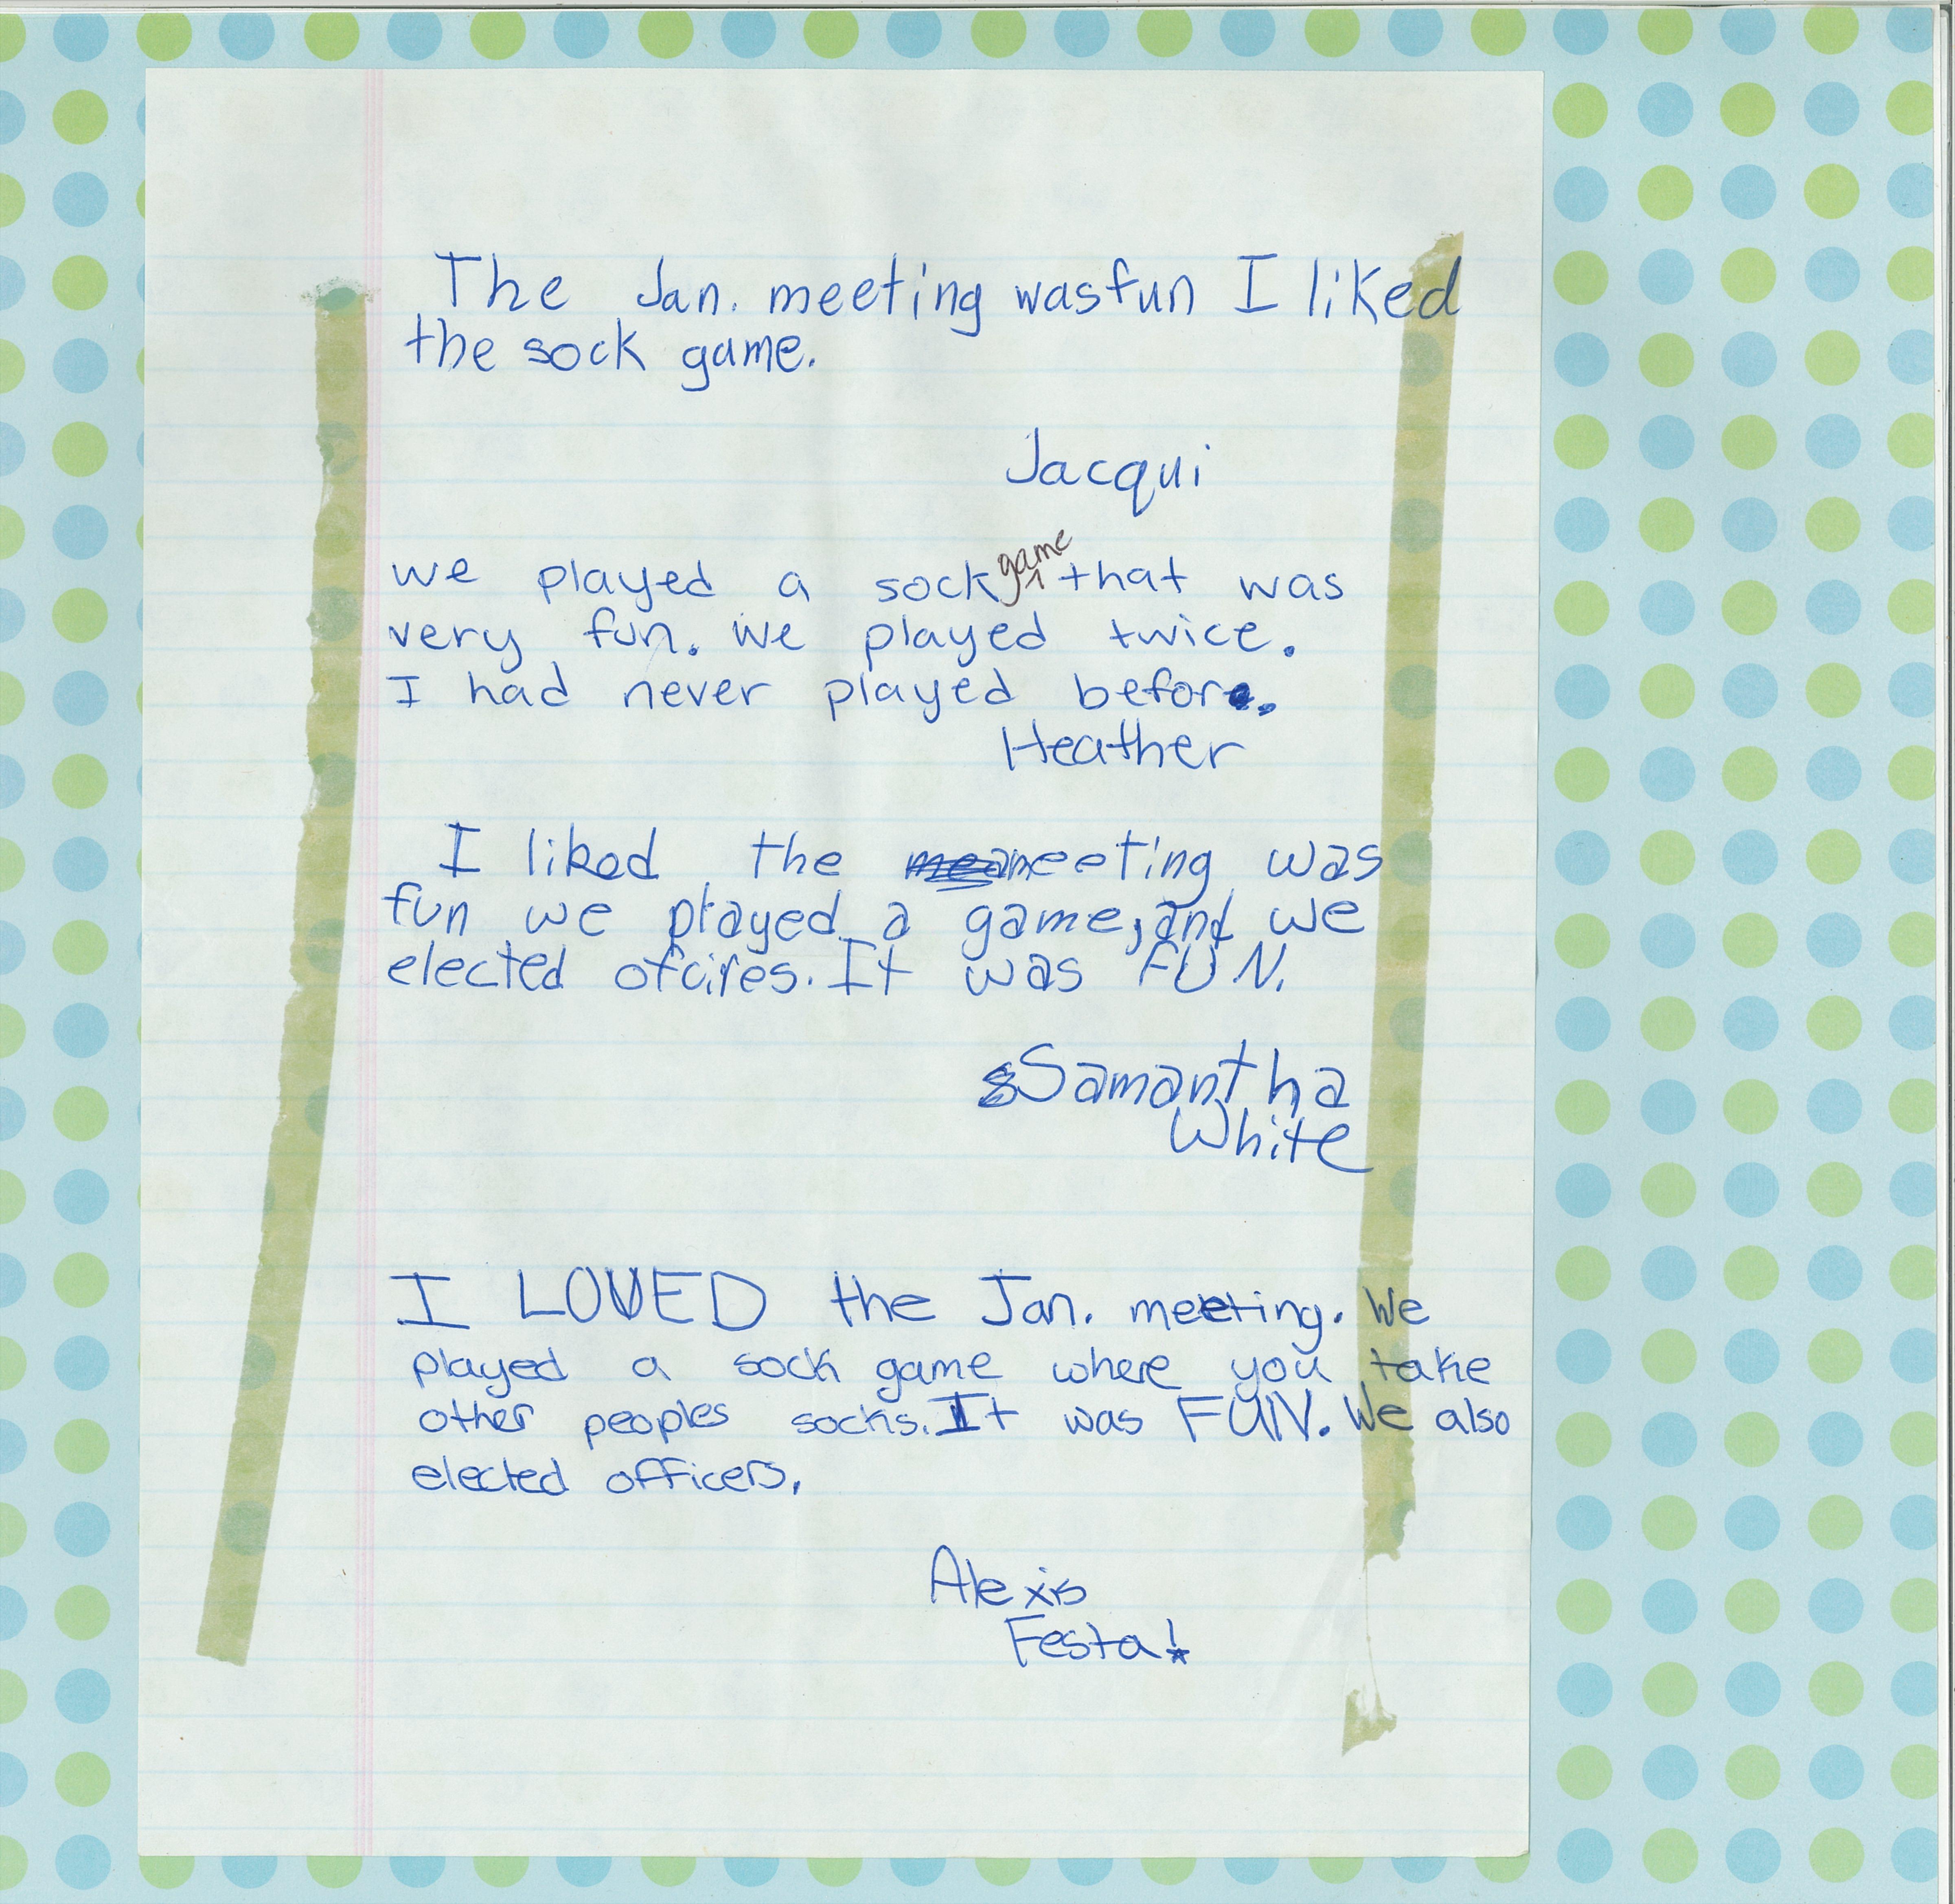 The Jan. meeting was fun I liked
the sock game.
Jacqui
we played a sock game that was
very fun. we played twice.
I had never played before.
Heather
I liked the meeting was
fun we played a game, and we
elected ofcires. It was FUN.
Samantha
White
I LOVED the Jan. meeting. We
played a sock game where you take
other peoples socks. It was FUN. We also
elected officers.
Alexis
Festa!